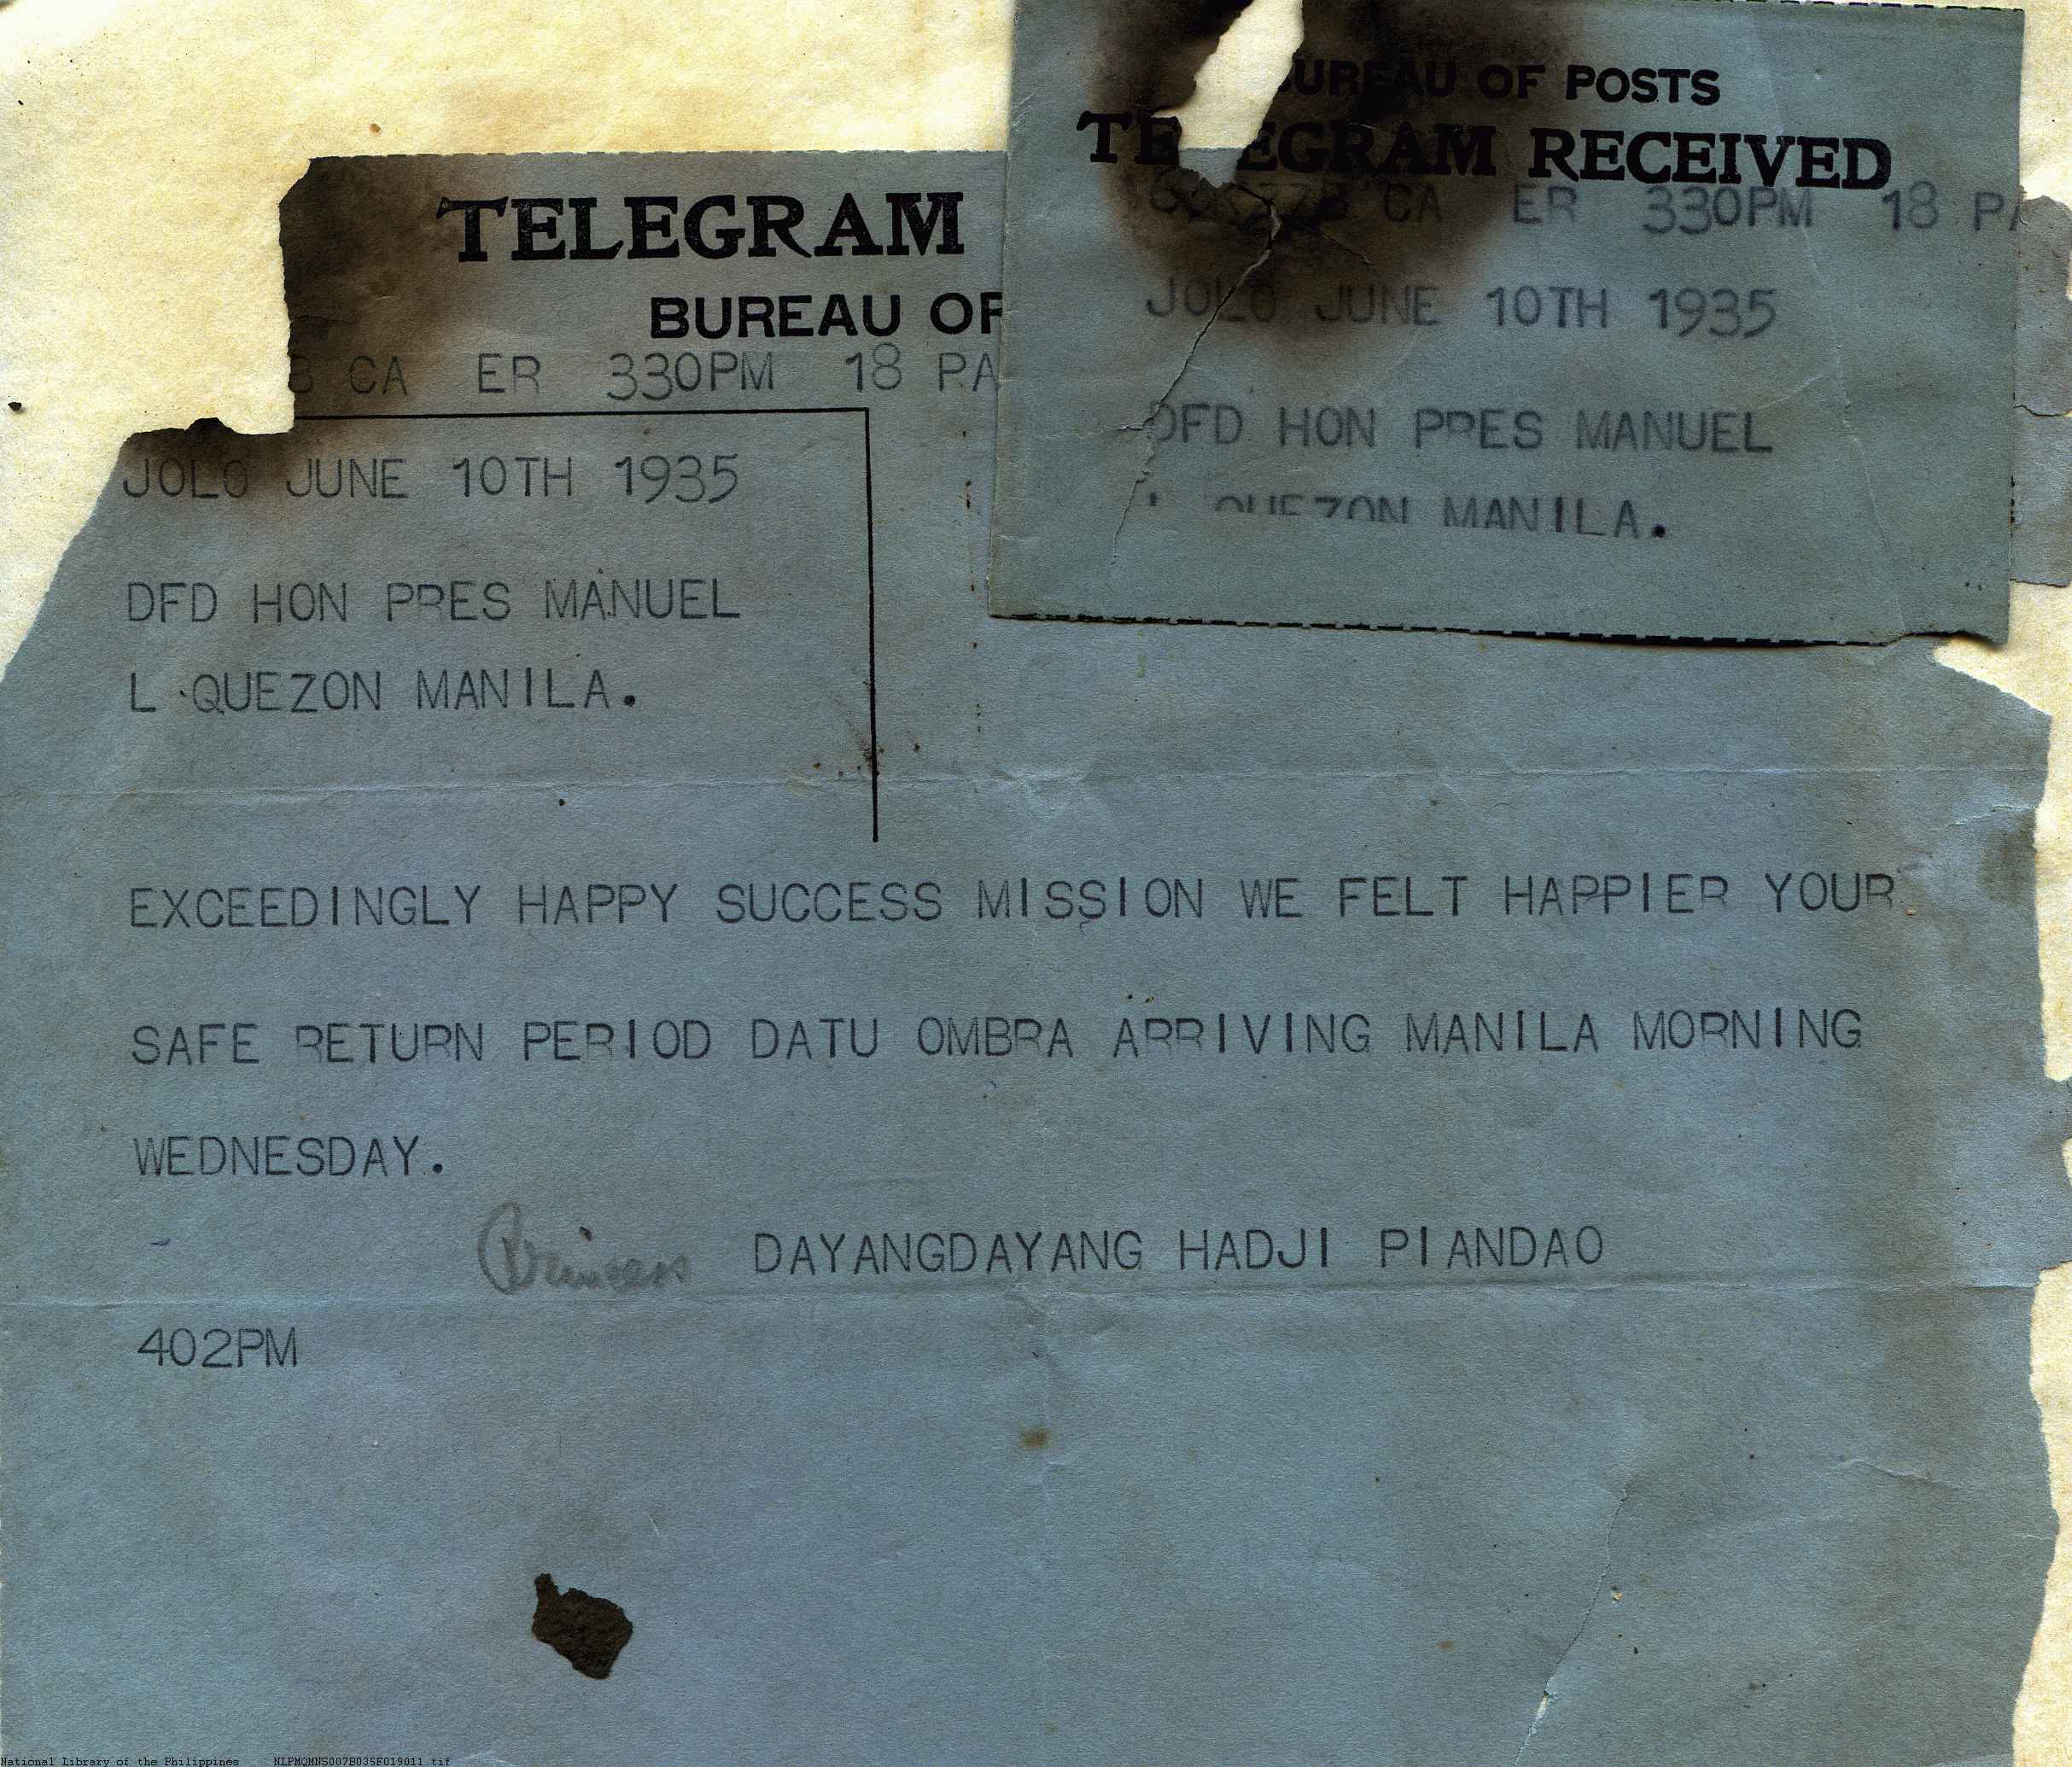 TELEGRAM
BUREAU OF
CA ER 330PM 18 PA
JOLO JUNE 10TH 1935
DFD HON PRES MANUEL
L QUEZON MANILA.
BUREAU OF POSTS
TELEGRAM RECEIVED
CA ER 330PM 18 PA
JOLO JUNE 10TH 1935
DFD HON PRES MANUEL
L QUEZON MANILA.
EXCEEDINGLY HAPPY SUCCESS MISSION WE FELT HAPPIER YOUR
SAFE RETURN PERIOD DATU OMBRA ARRIVING MANILA MORNING
WEDNESDAY.
Princess DAYANGDAYANG HADJI PIANDAO
402PM
National Library of the Philippines NLPMQMNS007B035F019011.tif